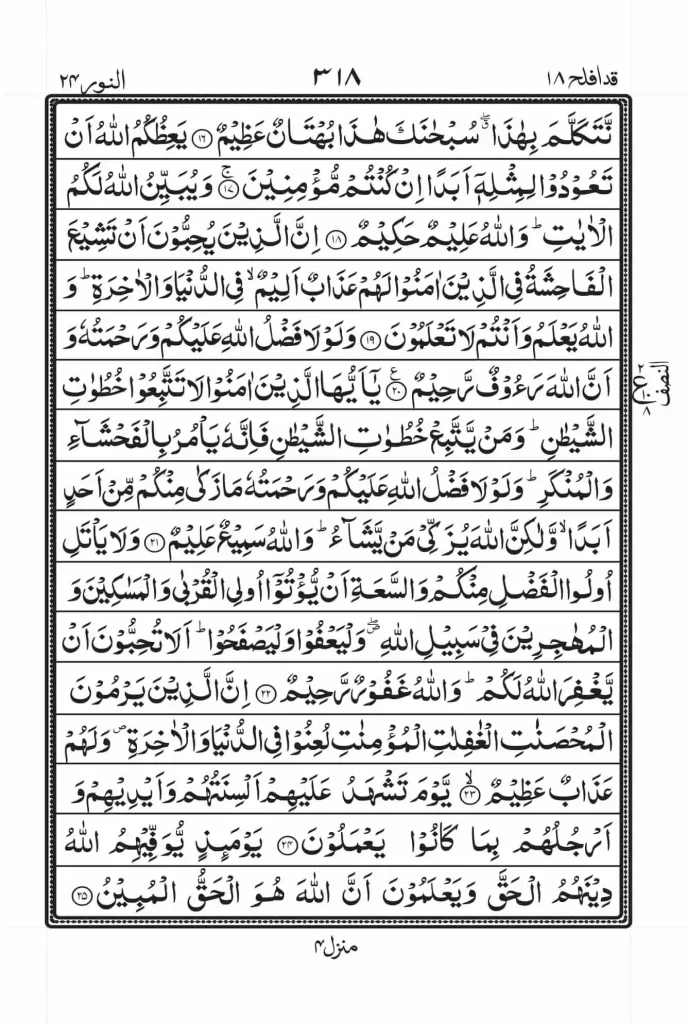 قد افلح ١٨ ٣١٨ النور ٢٤
نَّتَكَلَّمَ بِهٰذَا ۖۗ سُبۡحٰنَكَ هٰذَا بُهۡتَانٌ عَظِيۡمٌ ﴿۱۶﴾ يَعِظُكُمُ اللّٰهُ اَنۡ
تَعُوۡدُوۡا لِمِثۡلِهٖۤ اَبَدًا اِنۡ كُنۡتُمۡ مُّؤۡمِنِيۡنَ ۚ﴿۱۷﴾ وَيُبَيِّنُ اللّٰهُ لَكُمُ
الۡاٰيٰتِ ؕ وَاللّٰهُ عَلِيۡمٌ حَكِيۡمٌ ﴿۱۸﴾ اِنَّ الَّذِيۡنَ يُحِبُّوۡنَ اَنۡ تَشِيۡعَ
الۡفَاحِشَةُ فِى الَّذِيۡنَ اٰمَنُوۡا لَهُمۡ عَذَابٌ اَلِيۡمٌ ۙ فِى الدُّنۡيَا وَالۡاٰخِرَةِ ؕ وَ
اللّٰهُ يَعۡلَمُ وَاَنۡتُمۡ لَا تَعۡلَمُوۡنَ ﴿۱۹﴾ وَلَوۡلَا فَضۡلُ اللّٰهِ عَلَيۡكُمۡ وَرَحۡمَتُهٗ وَ
اَنَّ اللّٰهَ رَءُوۡفٌ رَّحِيۡمٌ ﴿۲۰﴾ ع يٰۤاَيُّهَا الَّذِيۡنَ اٰمَنُوۡا لَا تَتَّبِعُوۡا خُطُوٰتِ
الشَّيۡطٰنِ ؕ وَمَنۡ يَّتَّبِعۡ خُطُوٰتِ الشَّيۡطٰنِ فَاِنَّهٗ يَاۡمُرُ بِالۡفَحۡشَآءِ
وَالۡمُنۡكَرِ ؕ وَلَوۡلَا فَضۡلُ اللّٰهِ عَلَيۡكُمۡ وَرَحۡمَتُهٗ مَا زَكٰى مِنۡكُمۡ مِّنۡ اَحَدٍ
اَبَدًا ۙ وَّلٰكِنَّ اللّٰهَ يُزَكِّىۡ مَنۡ يَّشَآءُ ؕ وَاللّٰهُ سَمِيۡعٌ عَلِيۡمٌ ﴿۲۱﴾ وَلَا يَاۡتَلِ
اُولُوا الۡفَضۡلِ مِنۡكُمۡ وَالسَّعَةِ اَنۡ يُّؤۡتُوۡۤا اُولِى الۡقُرۡبٰى وَالۡمَسٰكِيۡنَ وَ
الۡمُهٰجِرِيۡنَ فِىۡ سَبِيۡلِ اللّٰهِ ۖ وَلۡيَعۡفُوۡا وَلۡيَصۡفَحُوۡا ؕ اَلَا تُحِبُّوۡنَ اَنۡ
يَّغۡفِرَ اللّٰهُ لَكُمۡ ؕ وَاللّٰهُ غَفُوۡرٌ رَّحِيۡمٌ ﴿۲۲﴾ اِنَّ الَّذِيۡنَ يَرۡمُوۡنَ
الۡمُحۡصَنٰتِ الۡغٰفِلٰتِ الۡمُؤۡمِنٰتِ لُعِنُوۡا فِى الدُّنۡيَا وَالۡاٰخِرَةِ ۪ وَلَهُمۡ
عَذَابٌ عَظِيۡمٌ ۙ﴿۲۳﴾ يَّوۡمَ تَشۡهَدُ عَلَيۡهِمۡ اَلۡسِنَتُهُمۡ وَاَيۡدِيۡهِمۡ وَ
اَرۡجُلُهُمۡ بِمَا كَانُوۡا يَعۡمَلُوۡنَ ﴿۲۴﴾ يَوۡمَٮِٕذٍ يُّوَفِّيۡهِمُ اللّٰهُ
دِيۡنَهُمُ الۡحَقَّ وَيَعۡلَمُوۡنَ اَنَّ اللّٰهَ هُوَ الۡحَقُّ الۡمُبِيۡنُ ﴿۲۵﴾
النصف
منزل ۴